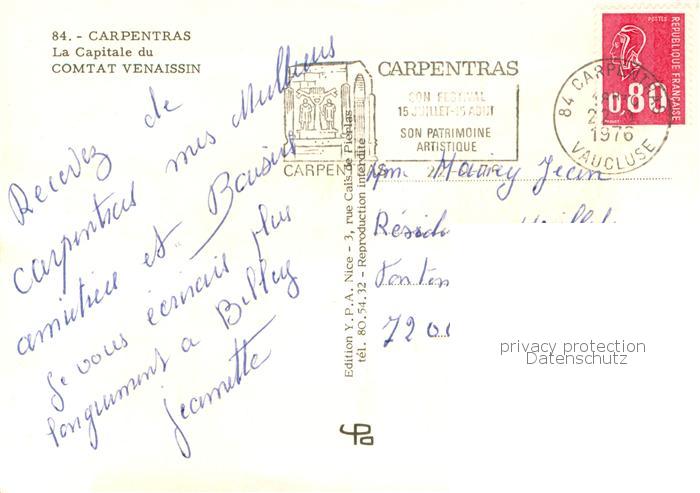 84. - CARPENTRAS
La Capitale du
COMTAT VENAISSIN
Recevez de
carpentras mes Meilleurs
amitiées et Baisers
je vous écrirais plus
longuement a Billey
jeannette
CARPENTRAS
SON FESTIVAL
15 JUILLET-15 AOUT
SON PATRIMOINE
ARTISTIQUE
CARPEN
84 CARPENTRAS
1976
VAUCLUSE
POSTES
REPUBLIQUE FRANÇAISE
0,80
Edition Y. P. A., Nice - 3, rue Cais de Pierlas
tél. 80.54.32 - Reproduction interdite
Jean
Résid
Fonten
7200
privacy protection
Datenschutz